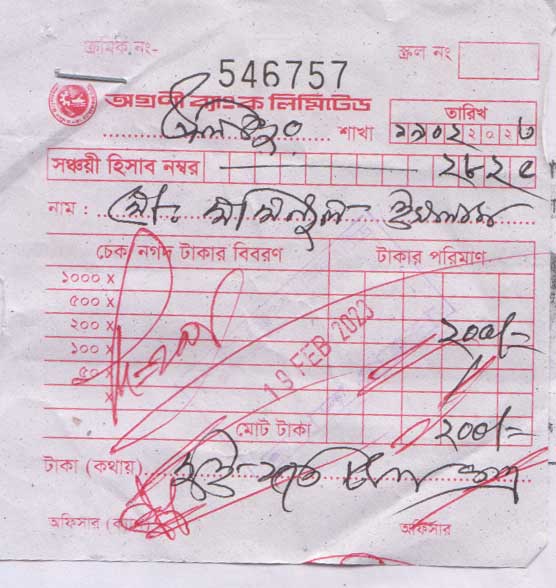 ক্রমিক নং- স্ক্রল নং
546757
অগ্রণী ব্যাংক লিমিটেড
শাখা তারিখ
১৯০২২০২৩
সঞ্চয়ী হিসাব নম্বর ২৮২৫
নাম : মোঃ ইসলাম
চেক/নগদ টাকার বিবরণ টাকার পরিমাণ
১০০০ x
৫০০ x
২০০ x ২০০/=
১০০ x
৫০ x
x
19 FEB 2023
মোট টাকা ২০০/=
টাকা (কথায়) দুই শত টাকা মাত্র
অফিসার অফিসার